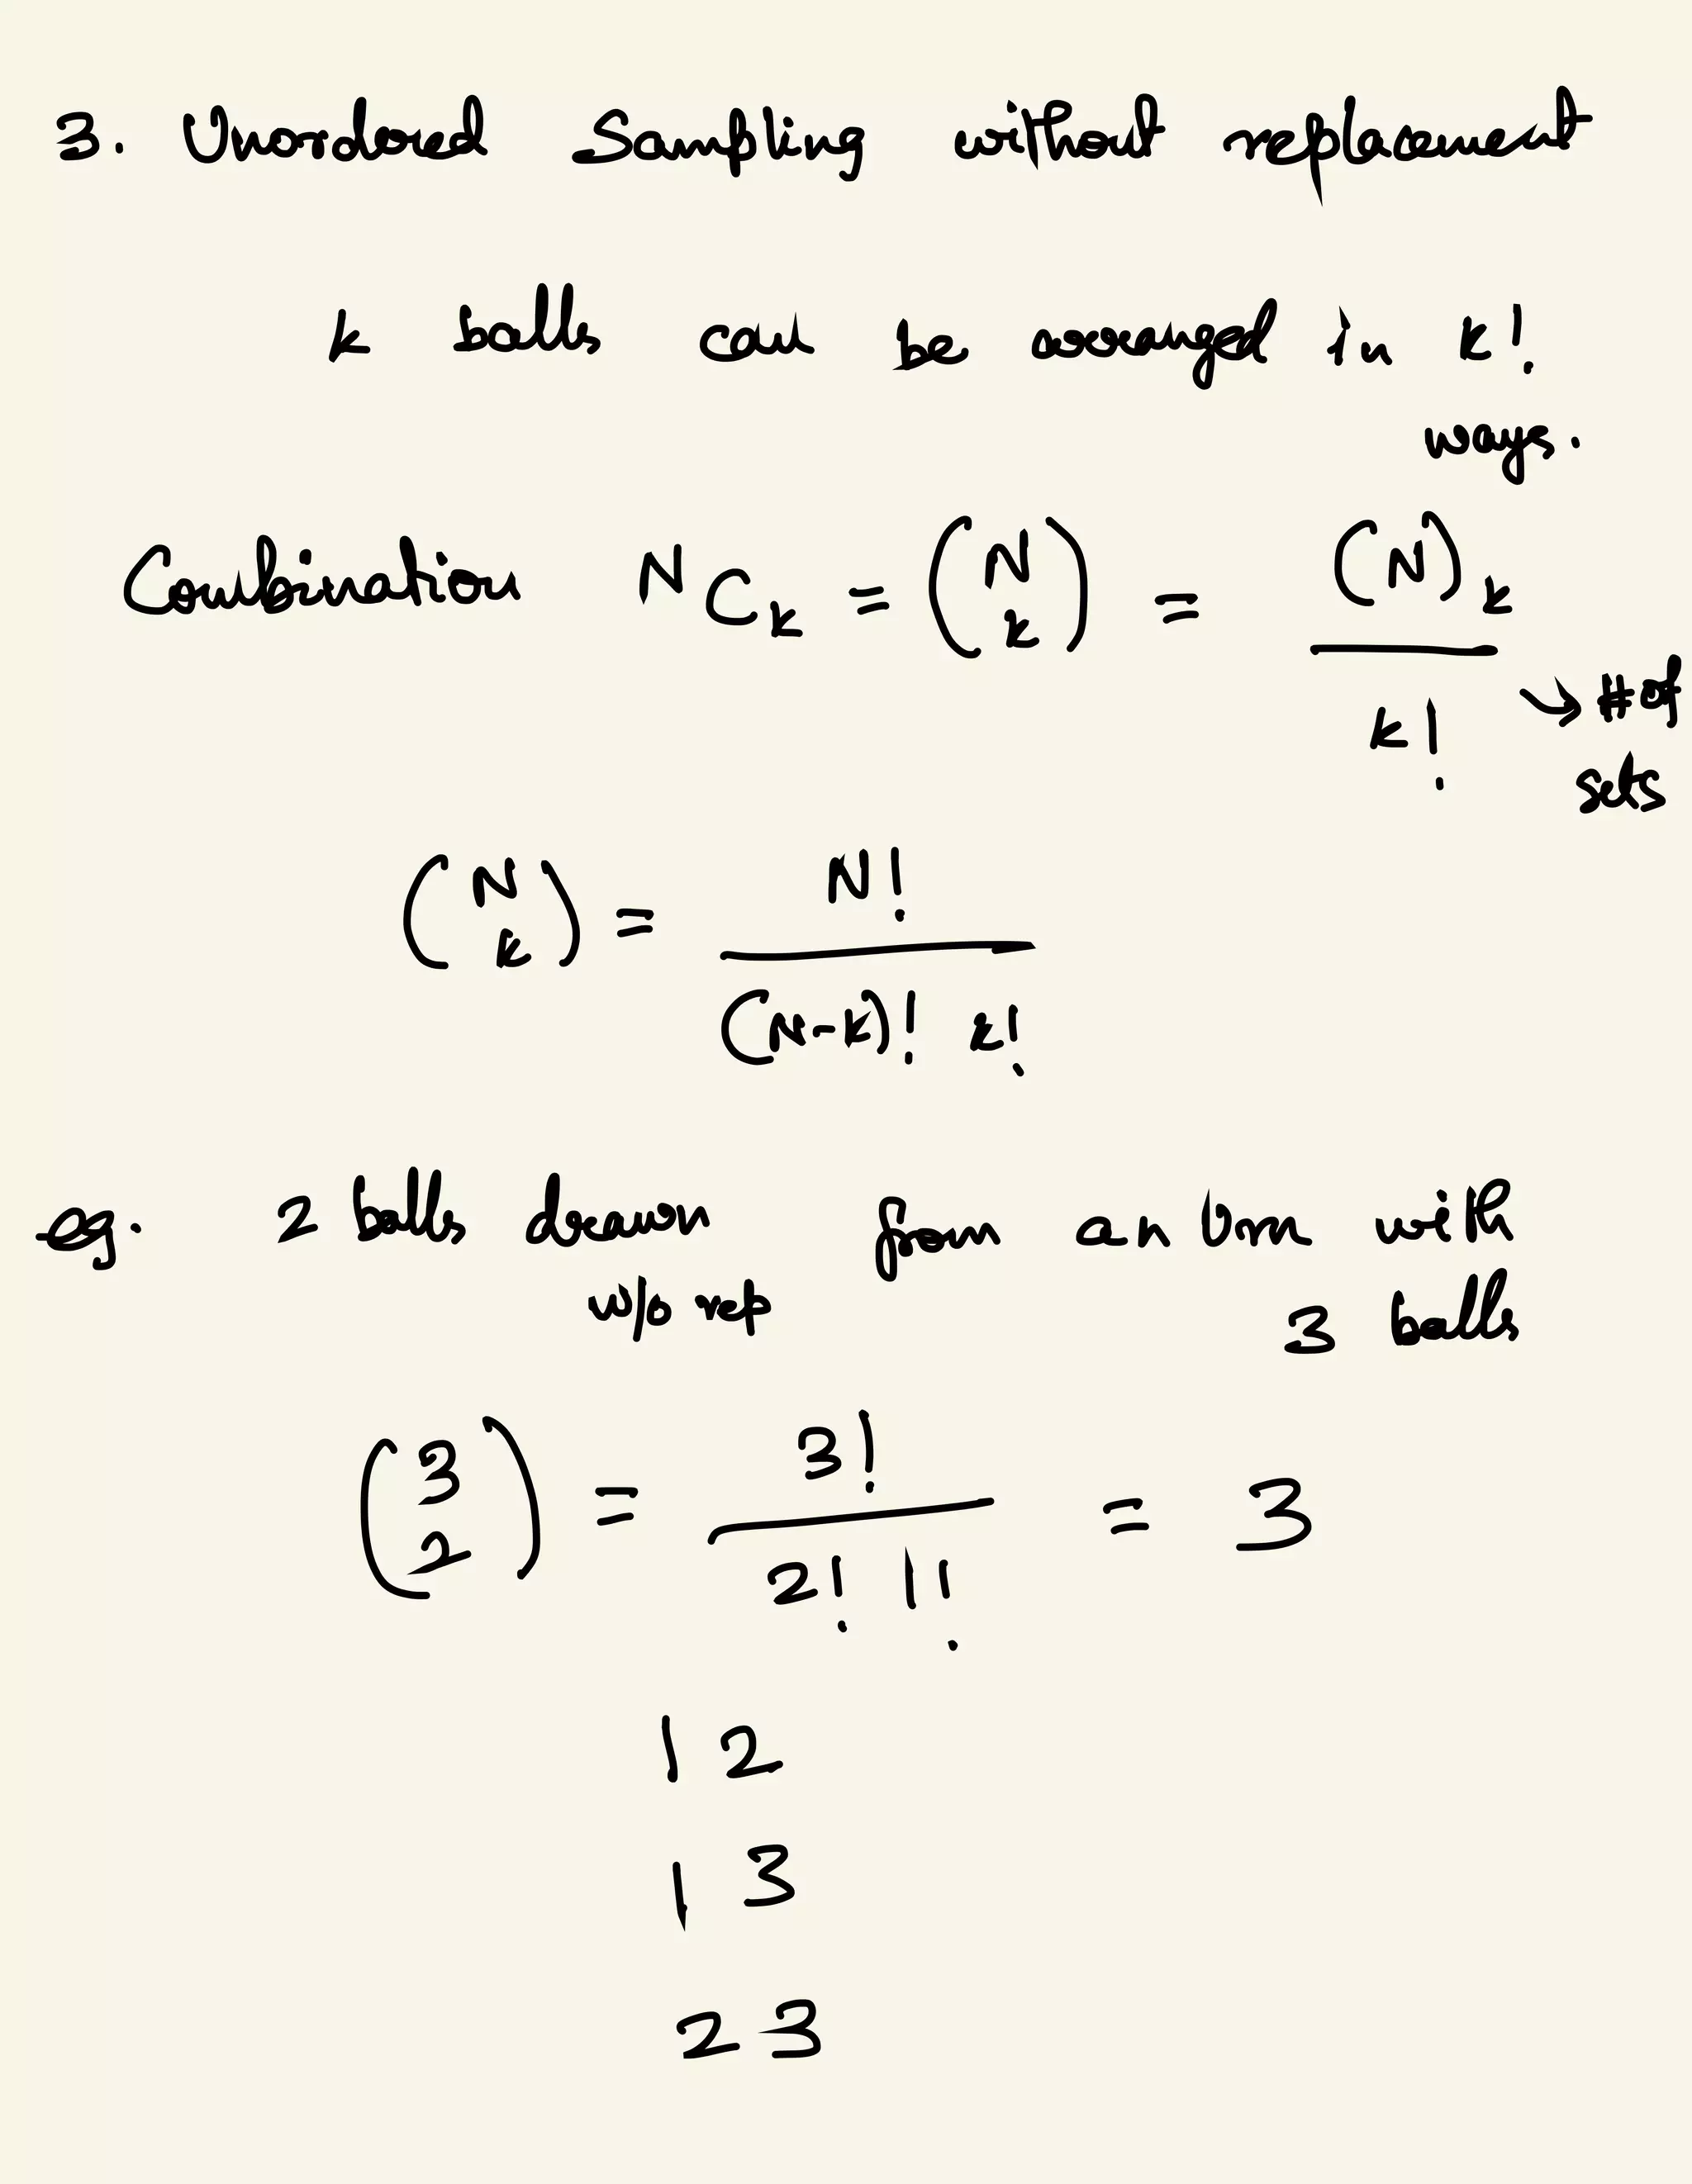 3. Unordered Sampling without replacement
k balls can be arranged in k!
ways.
Combination N C k = (N k) = (N) k / k! → # of sets
(N k) = N! / (N-k)! k!
eg. 2 balls drawn from an Urn with
w/o rep 3 balls
(3 2) = 3! / 2! 1! = 3
1 2
1 3
2 3